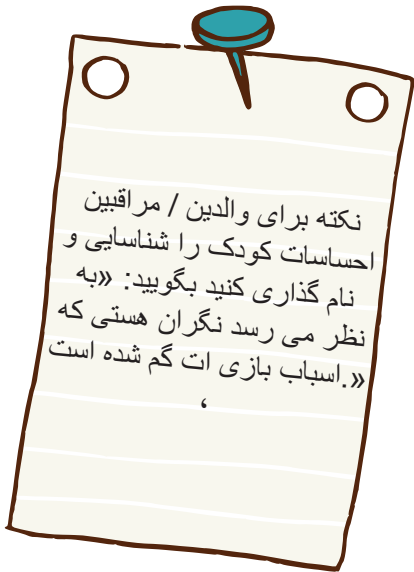 نکته برای والدین / مراقبین
احساسات کودک را شناسایی و
نام گذاری کنید بگویید: «به
نظر می رسد نگران هستی که
اسباب بازی ات گم شده است.»
،